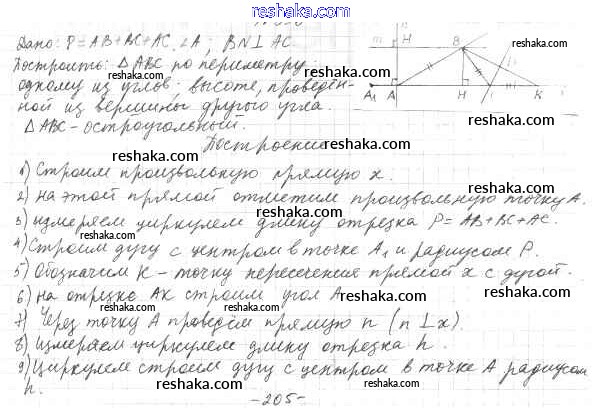 reshak.com
Дано: P=AB+BC+AC, ∠A; BN⊥AC
Построить: △ABC по периметру,
одному из углов, высоте, проведён-
ной из вершины другого угла.
△ABC - остроугольный.
m B
A₁ A H K
Построение
1) Строим произвольную прямую x.
2) на этой прямой отметим произвольную точку A.
3) измеряем циркулем длину отрезка P= AB+BC+AC.
4) Строим дугу с центром в точке A₁ и радиусом P.
5) Обозначим K - точку пересечения прямой x с дугой.
6) на отрезке AK строим угол A.
7) Через точку A проведём прямую n (n⊥x).
8) Измеряем циркулем длину отрезка h.
9) Циркулем строим дугу с центром в точке A радиусом
h.
-205-